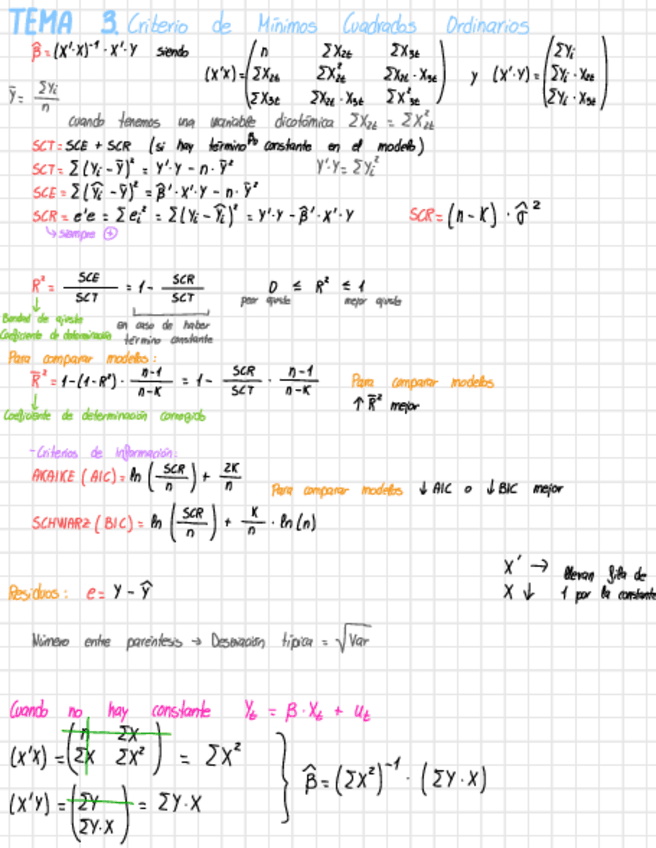 TEMA 3. Criterio de Mínimos Cuadrados Ordinarios
β̂ = (X'·X)⁻¹ · X'·Y siendo (X'X) = (n ΣX₂ₜ ΣX₃ₜ
ΣX₂ₜ ΣX²₂ₜ ΣX₂ₜ·X₃ₜ
ΣX₃ₜ ΣX₂ₜ·X₃ₜ ΣX²₃ₜ) y (X'·Y) = (ΣYᵢ
ΣYᵢ·X₂ₜ
ΣYᵢ·X₃ₜ)
Ȳ = ΣYᵢ / n
cuando tenemos una variable dicotómica ΣX₂ₜ = ΣX²₂ₜ
SCT = SCE + SCR (si hay término β₀ constante en el modelo)
SCT = Σ(Yᵢ - Ȳ)² = Y'·Y - n·Ȳ² Y'·Y = ΣYᵢ²
SCE = Σ(Ŷᵢ - Ȳ)² = β̂'·X'·Y - n·Ȳ²
SCR = e'e = Σeᵢ² = Σ(Yᵢ - Ŷᵢ)² = Y'·Y - β̂'·X'·Y SCR = (n-K)·σ̂²
↳ siempre ⊕
R² = SCE / SCT = 1 - SCR / SCT 0 ≤ R² ≤ 1
peor ajuste mejor ajuste
Bondad de ajuste
Coeficiente de determinación
en caso de haber
término constante
Para comparar modelos:
R̄² = 1-(1-R²)· n-1 / n-K = 1 - SCR / SCT · n-1 / n-K Para comparar modelos
↑ R̄² mejor
Coeficiente de determinación corregido
-Criterios de información:
AKAIKE (AIC) = ln (SCR / n) + 2K / n
Para comparar modelos ↓ AIC o ↓ BIC mejor
SCHWARZ (BIC) = ln (SCR / n) + K / n · ln(n)
X' → llevan fila de
X ↓ 1 por la constante
Residuos: e = Y - Ŷ
Número entre paréntesis → Desviación típica = √Var
Cuando no hay constante Yₜ = β·Xₜ + uₜ
(X'X) = (n ΣX
ΣX ΣX²) = ΣX²
(X'Y) = (ΣY
ΣY·X) = ΣY·X
β̂ = (ΣX²)⁻¹ · (ΣY·X)